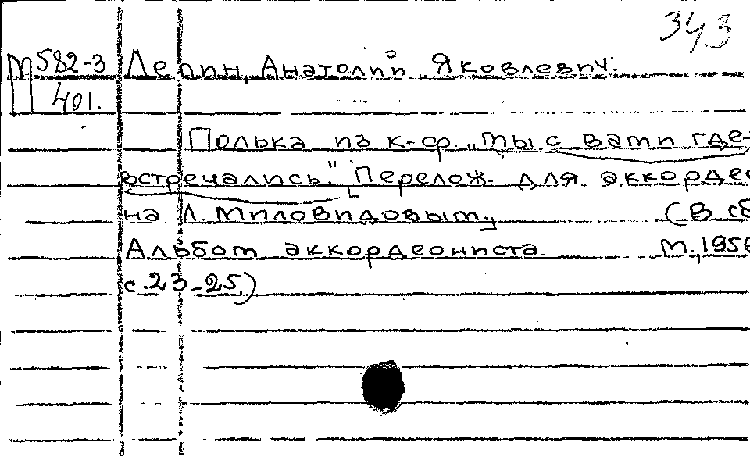 343
М 582-3 Лепин, Анатолий Яковлевич.
401.
Полька из к-ф. „Мы с вами где-
встречались." Перелож. для аккордео
на Л. Миловидовым. (В сб
Альбом аккордеониста М., 195
с. 23-25.)